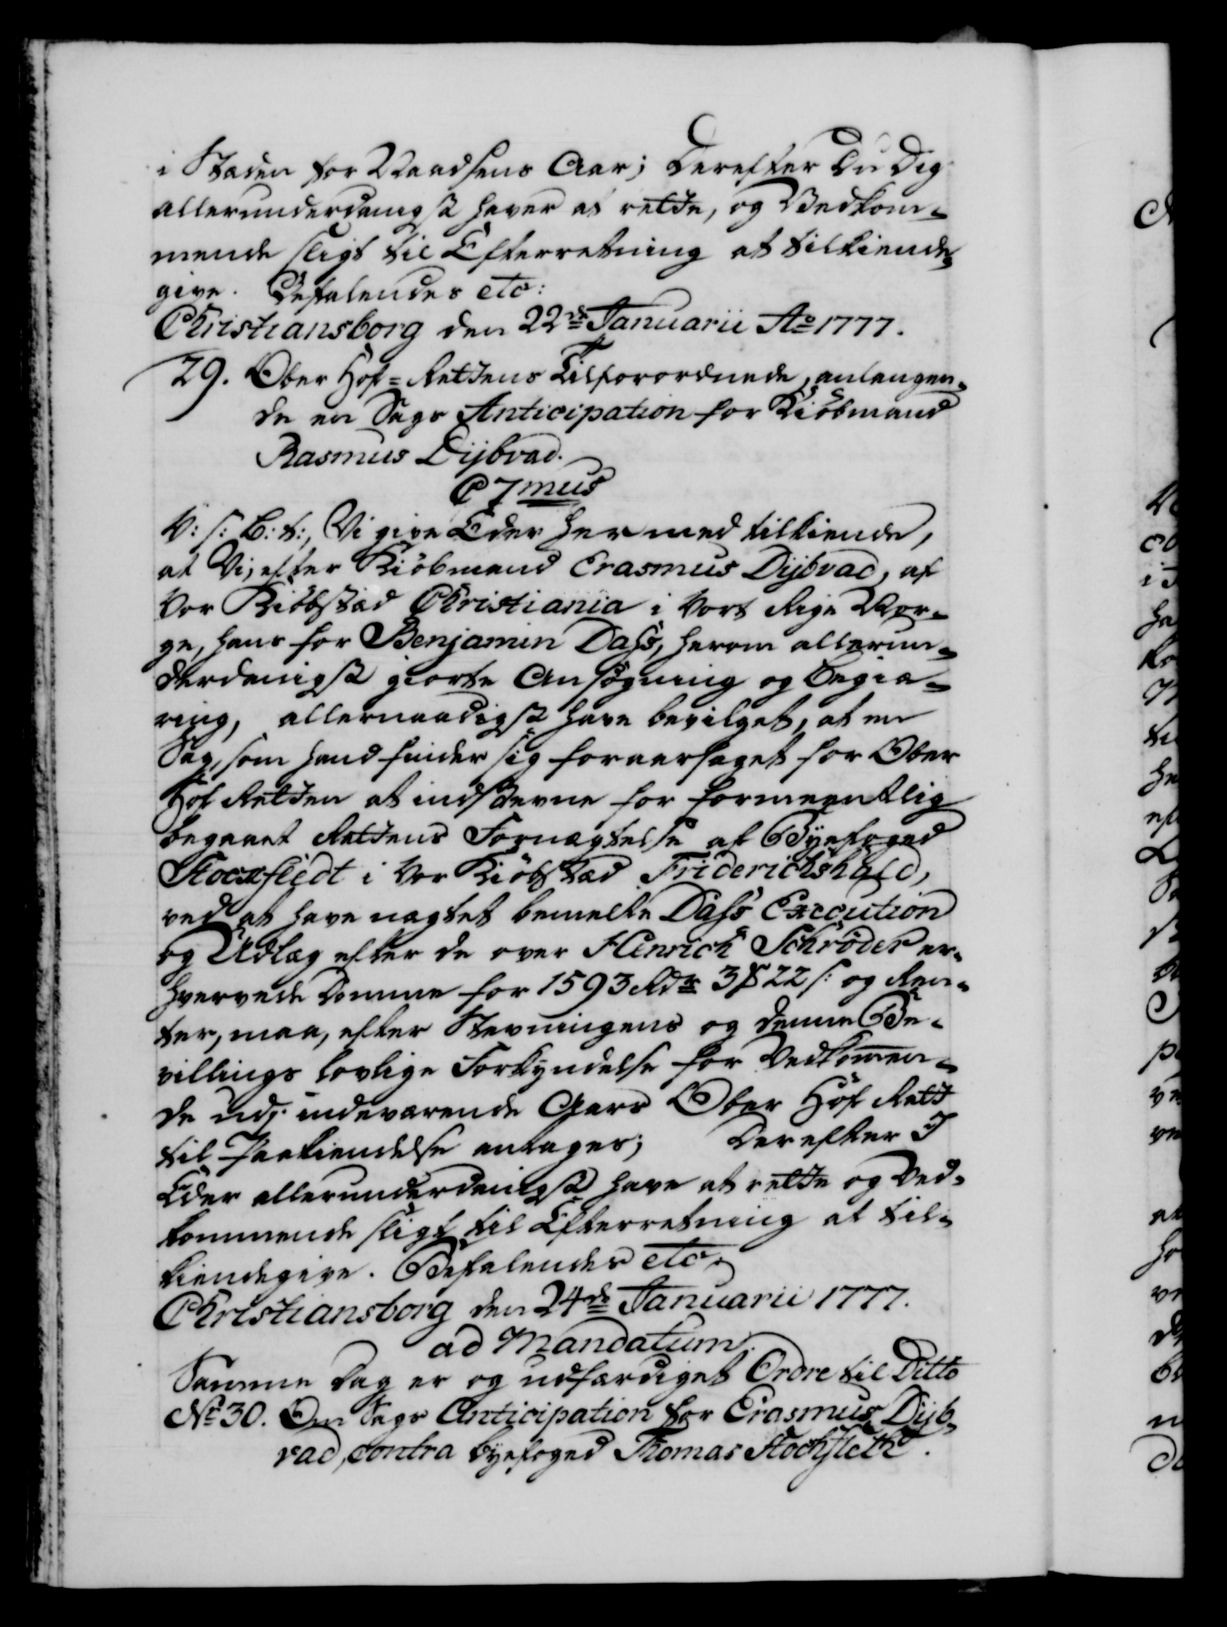 i Staden for Naadsens Aar; Derefter Du Dig
allerunderdanigst haver at rette, og Vedkom-
mende sligt til Efterretning at tilkiende-
give. Befalendes etc:
Christiansborg den 22de Januarii Ao 1777.
29. Ober Hof-Rettens Tilforordnede, anlangen-
de en Sags Anticipation for Kiöbmand
Rasmus Dijbvad.
C 7mus
V: S: B: T:, Vi give Eder hermed tilkiende,
at Vi, efter Kiöbmand Erasmus Dijbvad, af
Vor Kiöbstad Christiania i Vort Rige Nor-
ge, hans for Benjamin Dass, herom allerun-
derdanigst giorte Ansøgning og Begiæ-
ring, allernaadigst have bevilget, at en
Sag, som hand finder sig foraarsaget for Ober
Hof Retten at indstevne for formeentlig
begaaet Rettens Fornægtelse af Byefoged
Stockfledt i Vor Kiöbstad Friderichshald,
ved at have nægtet bemelte Dass Execution
og Udlæg efter de over Henrich Schrøder er-
hvervede Domme for 1593 Rdr 3 # 22 s: og Ren-
ter, maa, efter Stevningens og denne Be-
villings lovlige Forkyndelse for Vedkommen-
de udj indeværende Aars Ober Hof Rett
til Paakiendelse antages; Derefter I
Eder allerunderdanigst have at rette og Ved-
kommende sligt til Efterretning at til-
kiendegive. Befalendes etc.
Christiansborg den 24de Januarii 1777.
ad Mandatum.
Samme Dag er og udfærdiget Ordre til Ditto
No 30. Om Sags Anticipation for Erasmus Dijb-
vad, contra Byefoged Thomas Stockfleth.